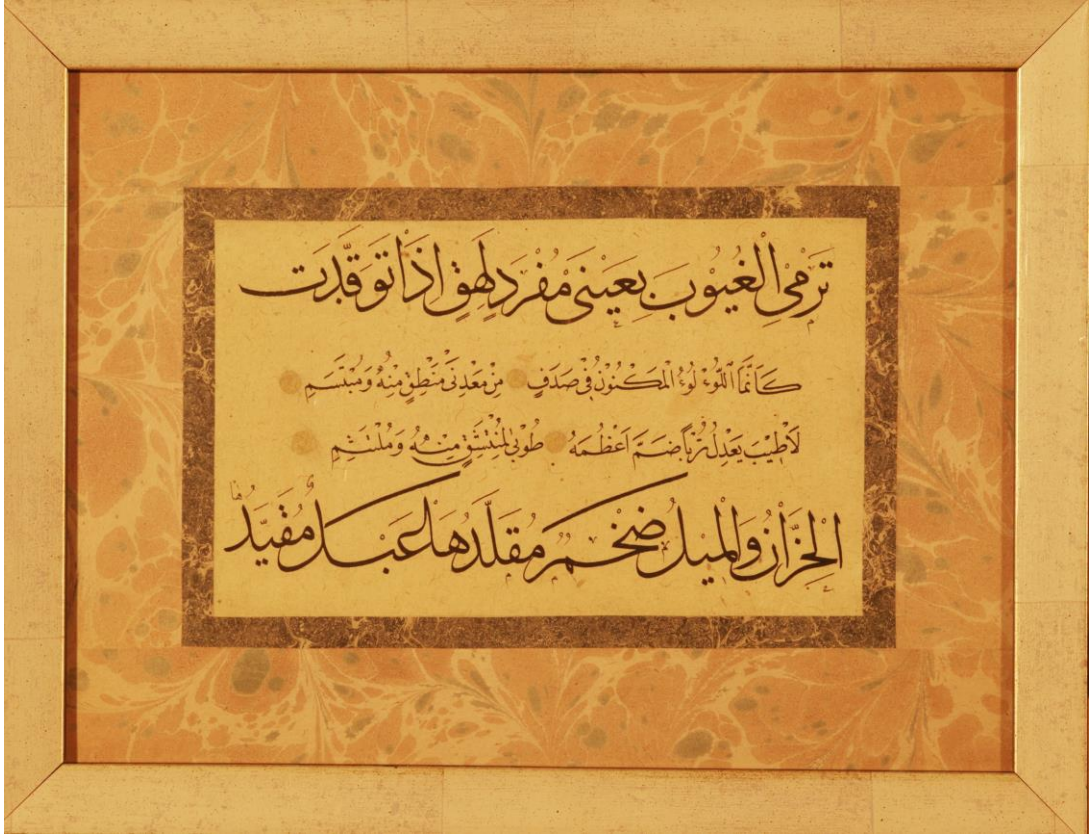 تَرْمِي الْغُيُوبَ بِعَيْنَيْ مُفْرَدٍ لَهِقٍ اِذَا تَوَقَّدَتْ
كَاَنَّمَا اللُّؤْلُؤُ الْمَكْنُونُ فِي صَدَفٍ مِنْ مَعْدِنَيْ مَنْطِقٍ مِنْهُ وَمُبْتَسَمِ
لَاطِيبَ يَعْدِلُ تُرْبًا ضَمَّ اَعْظُمَهُ طُوبَى لِمُنْتَشِقٍ مِنْهُ وَمُلْتَثِمِ
الْحُزَّانُ وَالْمِيلُ ضَخْمٌ مُقَلَّدُهَا عَبْلٌ مُقَيَّدُهَا